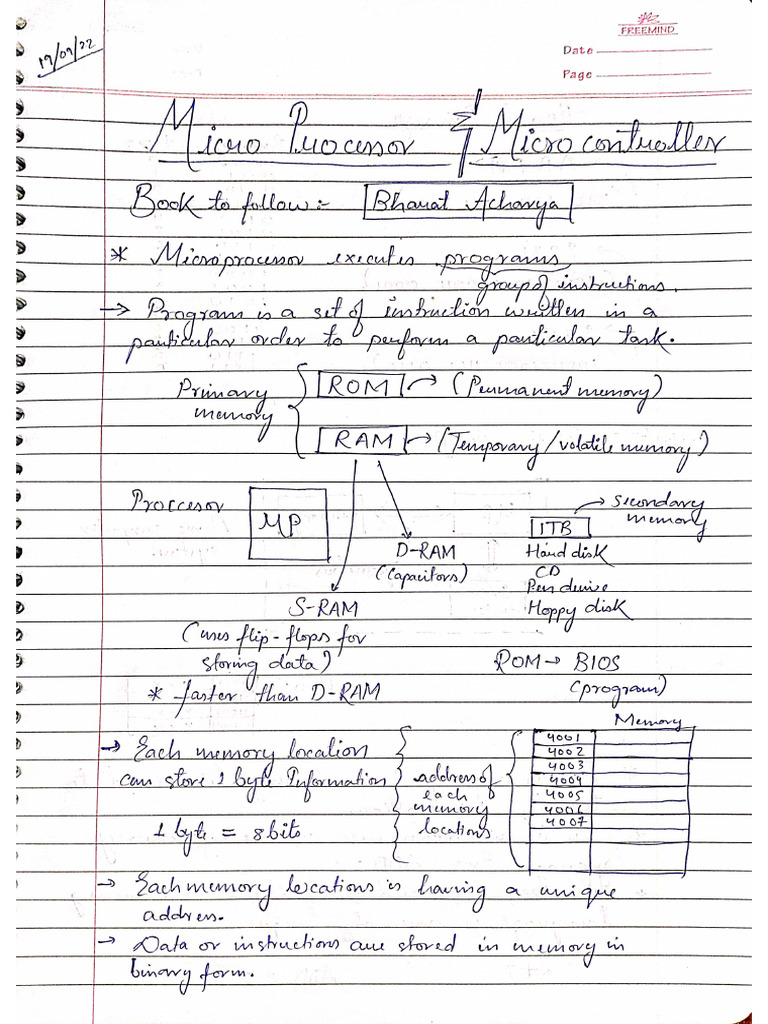 FREEMIND
19/09/22
Date
Page
Micro Processor & Microcontroller
Book to follow:- Bharat Acharya
* Microprocessor executes programs
group of instructions.
→ Program is a set of instruction written in a
particular order to perform a particular task.
Primary memory
ROM → (Permanent memory)
RAM → (Temporary/volatile memory)
Proccesor
MP
D-RAM
(Capacitors)
S-RAM
(uses flip-flops for
storing data)
* faster than D-RAM
1TB → Secondary memory
Hard disk
CD
Pen derive
Floppy disk
ROM → BIOS
(program)
→ Each memory location
can store 1 byte Information
1 byte = 8 bits
address of
each
memory
locations
Memory
4001
4002
4003
4004
4005
4006
4007
→ Each memory locations is having a unique
address.
→ Data or instructions are stored in memory in
binary form.